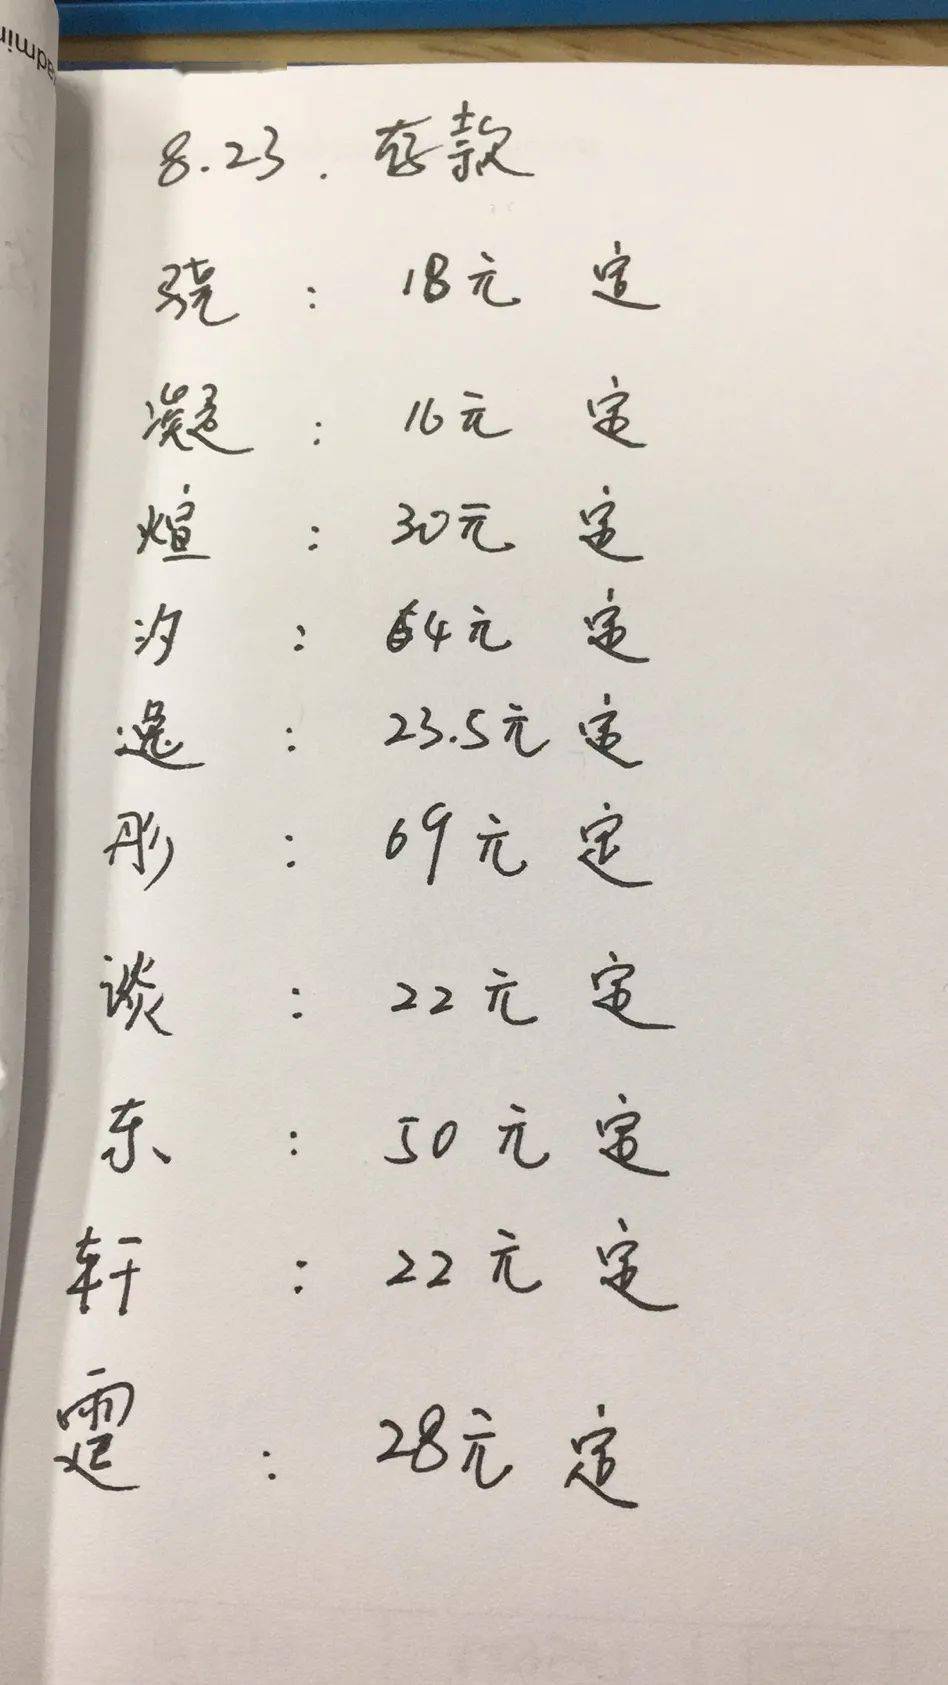 8.23. 存款
骁：18元 定
凝：16元 定
煊：30元 定
汐：64元 定
逸：23.5元 定
彤：69元 定
谈：22元 定
东：50元 定
轩：22元 定
霆：28元 定